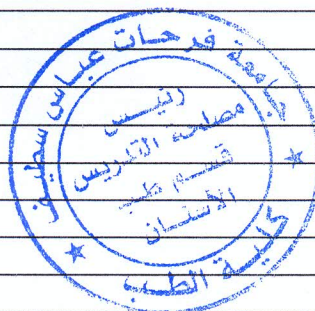 جامعة فرحات عباس سطيف
كلية الطب
رئيس
مصلحة التدريس
قسم طب
الأسنان